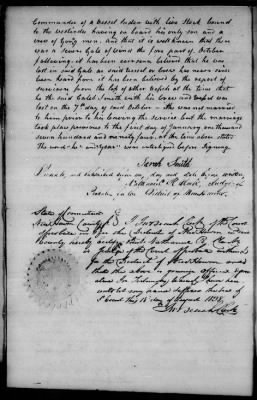 Commander of a vessel laden with live Stock bound
to the westindes having on board his only son and a
crew of forty men and that it is well known that there
was a severe Gale of wind the fore part of October
following, it has been ever since believed that he was
lost in said Gale as said vessel or crew has never since
been heard from it has been believed by the report of
survivors from the loss of other vessels at the time that
he the said Caleb Smith with his crew and vessel was
lost on the 9th day of said October - She was not married
to him prior to his leaving the service but the marriage
took place previous to the first day of January one thousand
seven hundred and ninety four, at the time above stated.
The word "he" and "year" were interlined before signing
Sarah Smith
Sworn to, and subscribed before me, day and date before written,
Judge of
Probate in the District of
State of Connecticut
New Haven County
Probate in & for the District of New Haven
County hereby certify that
is Judge of the Court of Probate
for the District of and
that the above is genuine
done In Testimony Whereof I have here
unto set my hand & affixed the Seal of
said Court this 16 day of August 1838,